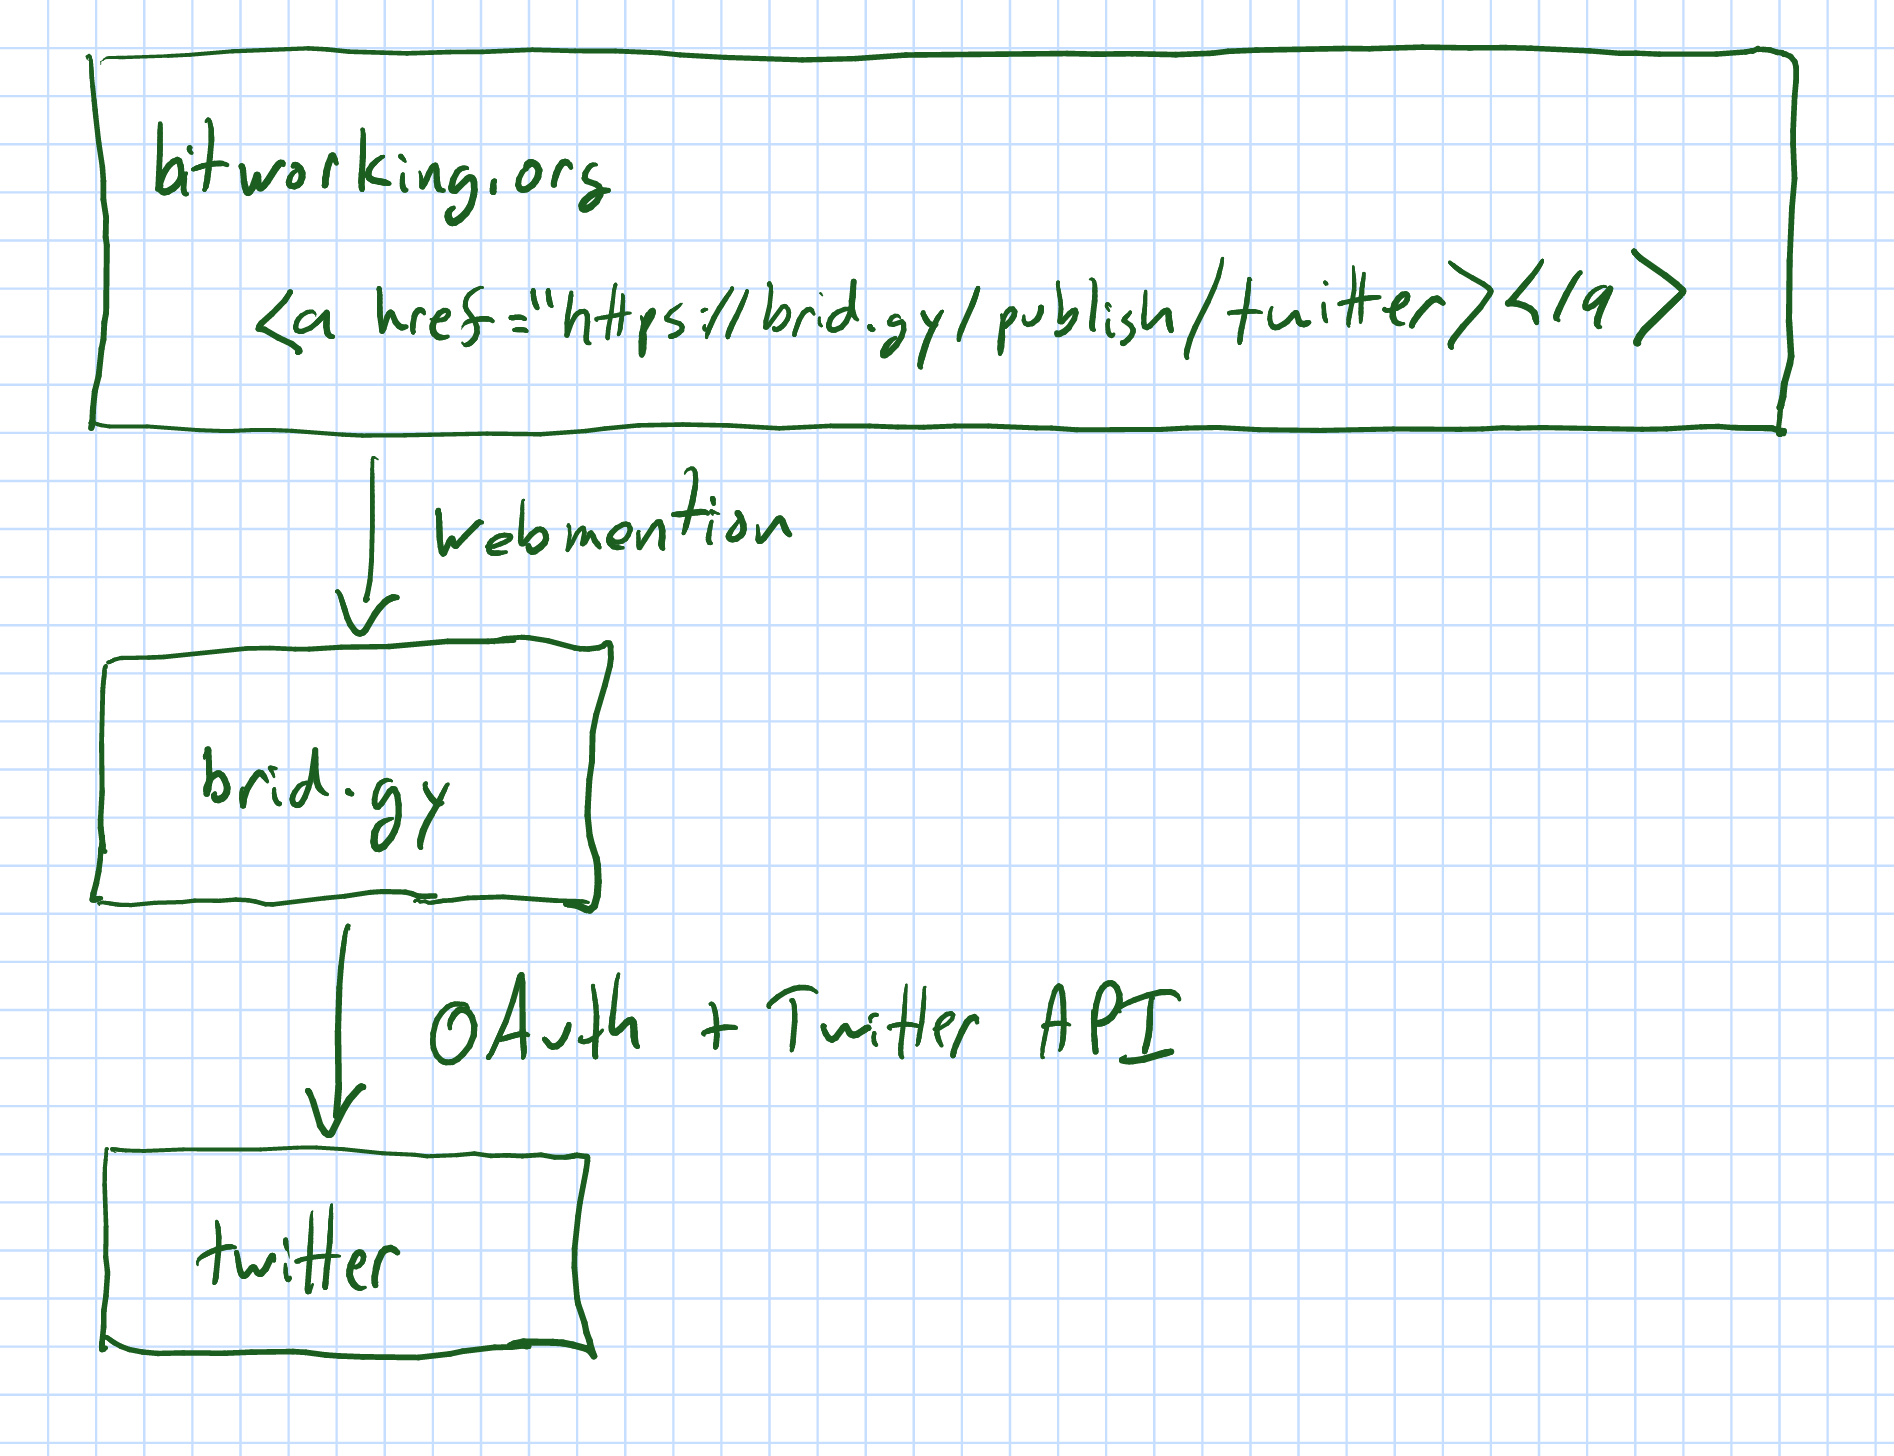 bitworking.org
<a href="https://brid.gy/publish/twitter></a>
Webmention
brid.gy
OAuth + Twitter API
twitter